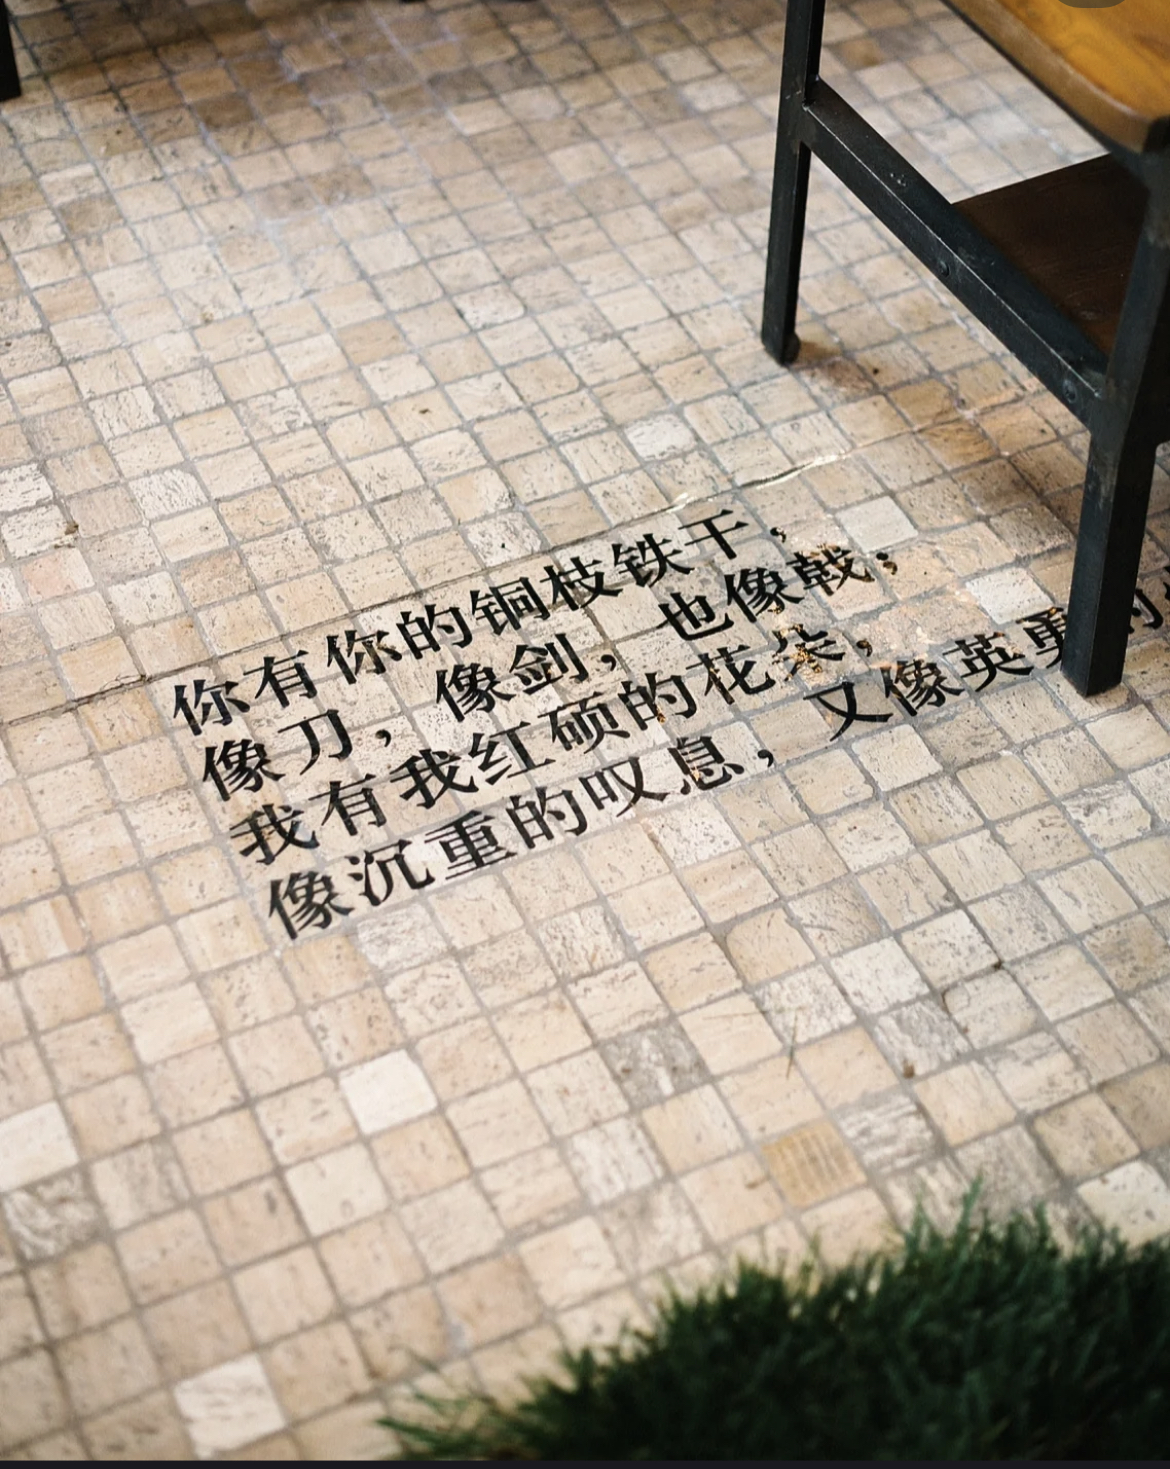 你有你的铜枝铁干，
像刀，像剑，也像戟；
我有我红硕的花朵，
像沉重的叹息，又像英勇的